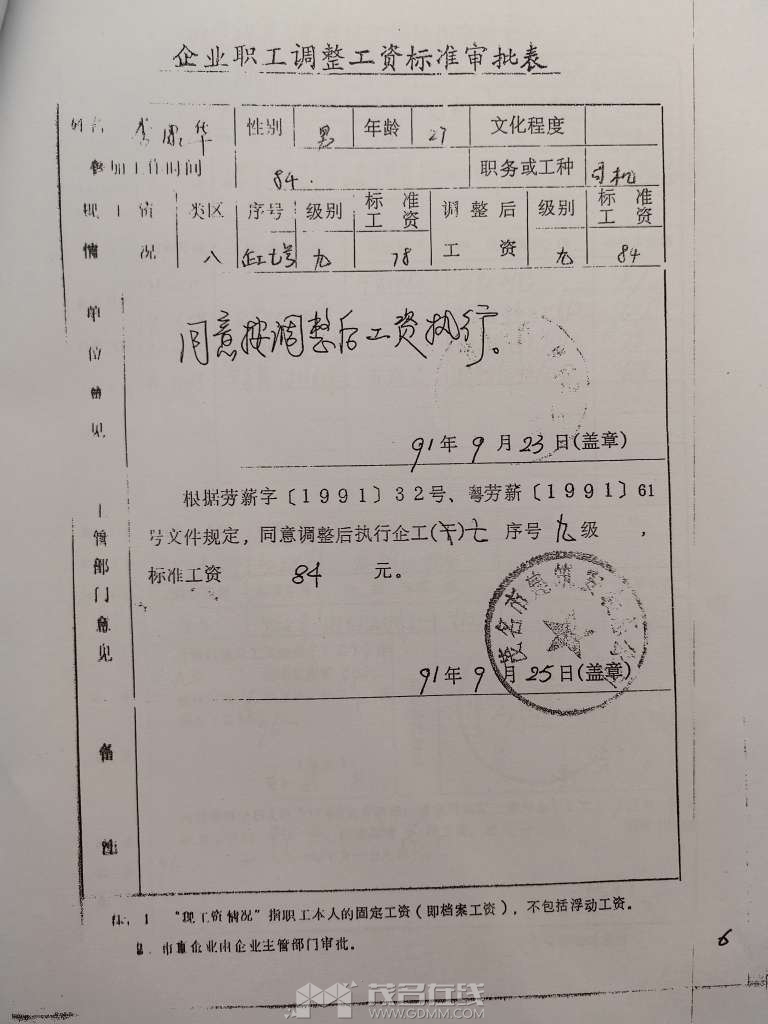 企业职工调整工资标准审批表
姓名 华 性别 男 年龄 27 文化程度
参加工作时间 84. 职务或工种 司机
现工资 类区 序号 级别 标准工资 调整后工资 级别 标准工资
情况 八 企工七号 九 78 九 84
单位意见
同意按调整后工资执行。
91年9月23日(盖章)
主管部门意见
根据劳薪字〔1991〕32号、粤劳薪〔1991〕61
号文件规定，同意调整后执行企工(干)七 序号九级，
标准工资 84 元。
茂名市建筑
91年9月25日(盖章)
备注
注：1 “现工资情况”指职工本人的固定工资（即档案工资），不包括浮动工资。
市直企业由企业主管部门审批。
6
茂名在线
WWW.GDMM.COM